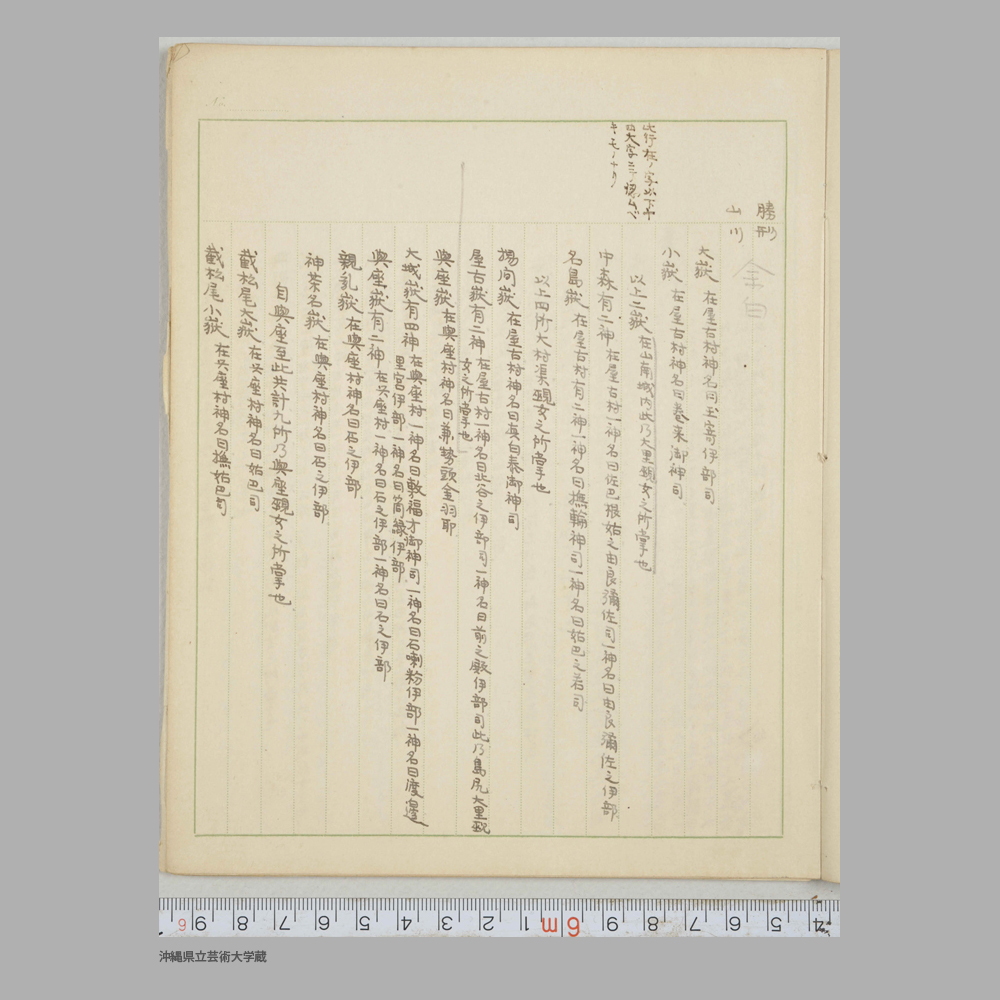 勝形
山川
此行在ノ字以下ヲ
大嶽 在屋古村神名曰玉寄伊部司
小嶽 在屋古村神名曰巻来御神司
以上二嶽在山南城内此乃大里親女之所掌也
中森有二神 在屋古村一神名曰佐巴根姑之由良瀰佐司一神名曰由良瀰佐之伊部
名島嶽 在屋古村有二神一神名曰撫輪神司一神名曰姑巴之若司
以上四所大村渠親女之所掌也
揚向嶽 在屋古村神名曰真白泰御神司
屋古嶽有二神 在屋古村一神名曰北谷之伊部司一神名曰前之殿伊部司此乃島尻大里親
女之所掌也
與座嶽 在與座村神名曰兼勢頭金羽耶
大城嶽有四神 在與座村一神名曰敷福才御神司一神名曰石喇粉伊部一神名曰渡邊
里宮伊部一神名曰筒緑伊部
與座嶽有二神 在与座村一神名曰石之伊部一神名曰石之伊部
親乳嶽 在與座村神名曰石之伊部
神茶名嶽 在與座村神名曰石之伊部
自與座至此共計九所乃與座親女之所掌也
截松尾大嶽 在与座村神名曰姑巴司
截松尾小嶽 在与座村神名曰撫姑巴司
9 8 7 6 5 4 3 2 1 6m 9 8 7 6 5 4
沖縄県立芸術大学蔵